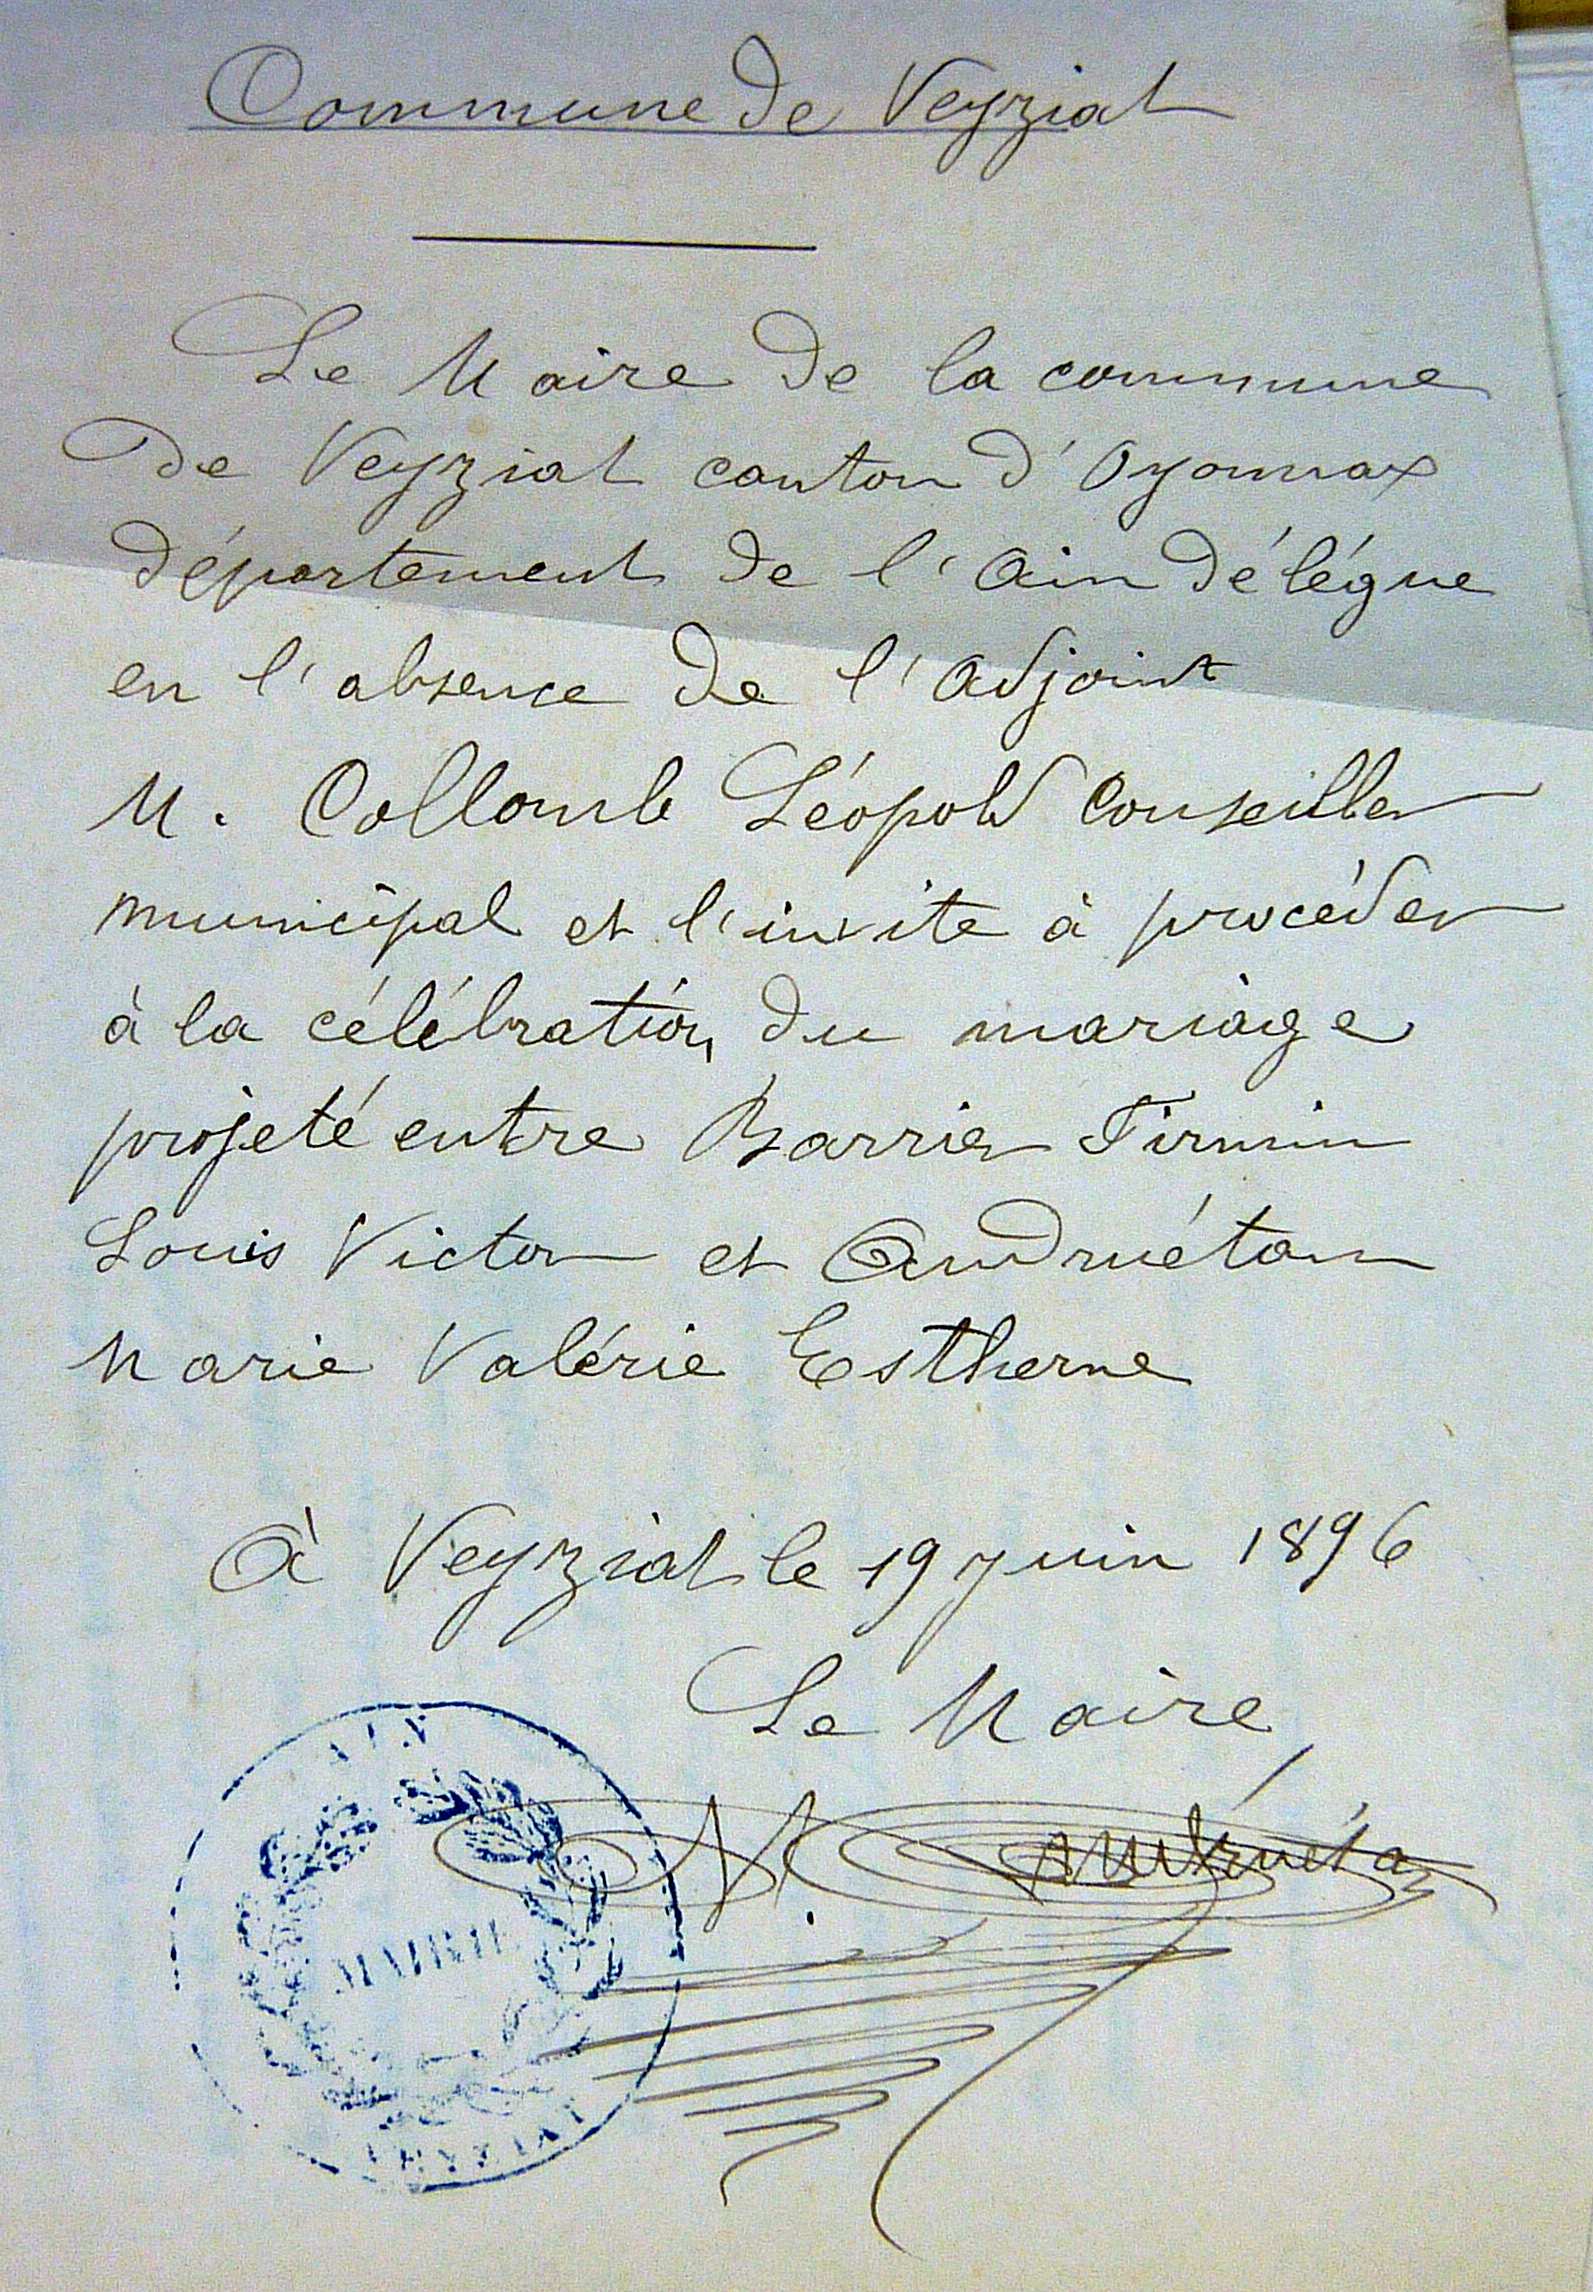 Commune de Veyziat
Le Maire de la commune
de Veyziat canton d'Oyonnax
département de l'Ain délégue
en l'absence de l'adjoint
M. Collomb Léopold Conseiller
municipal et l'invite à procéder
à la célébration du mariage
projeté entre Barrier Firmin
Louis Victor et Andruétan
Marie Valérie Estherne
A Veyziat le 19 juin 1896
Le Maire,
AIN
MAIRIE
VEYZIAT